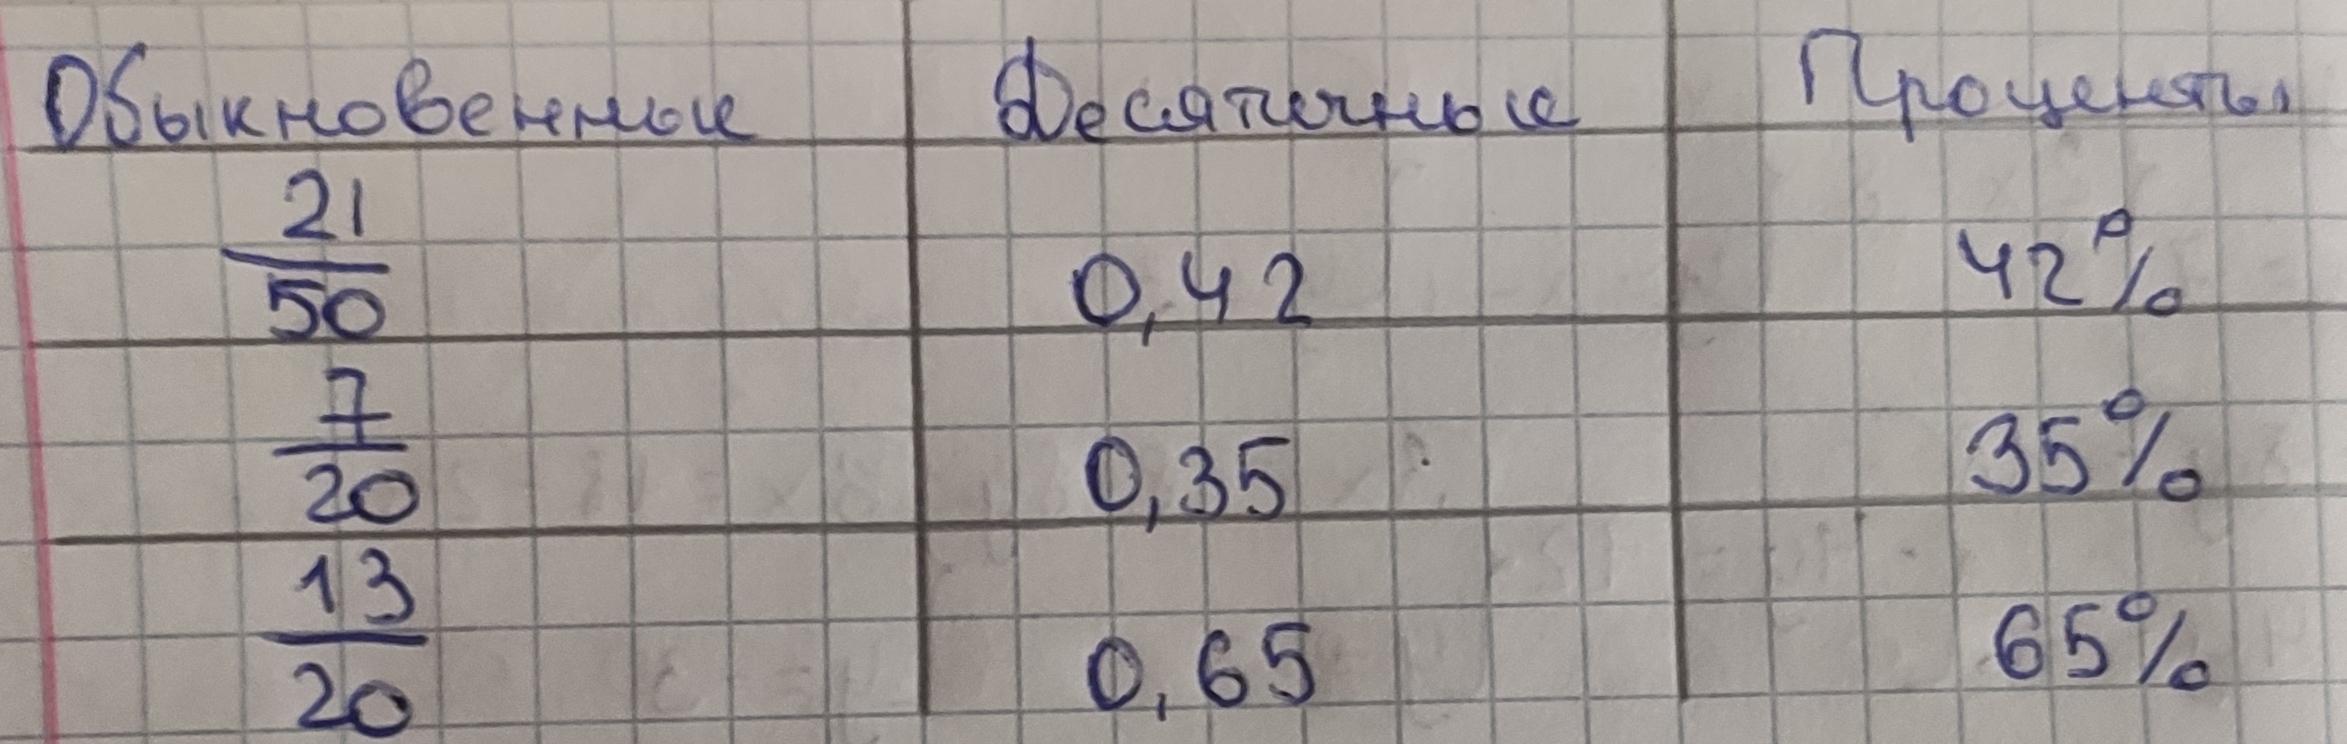 Обыкновенные Десятичные Проценты
21/50 0,42 42%
7/20 0,35 35%
13/20 0,65 65%